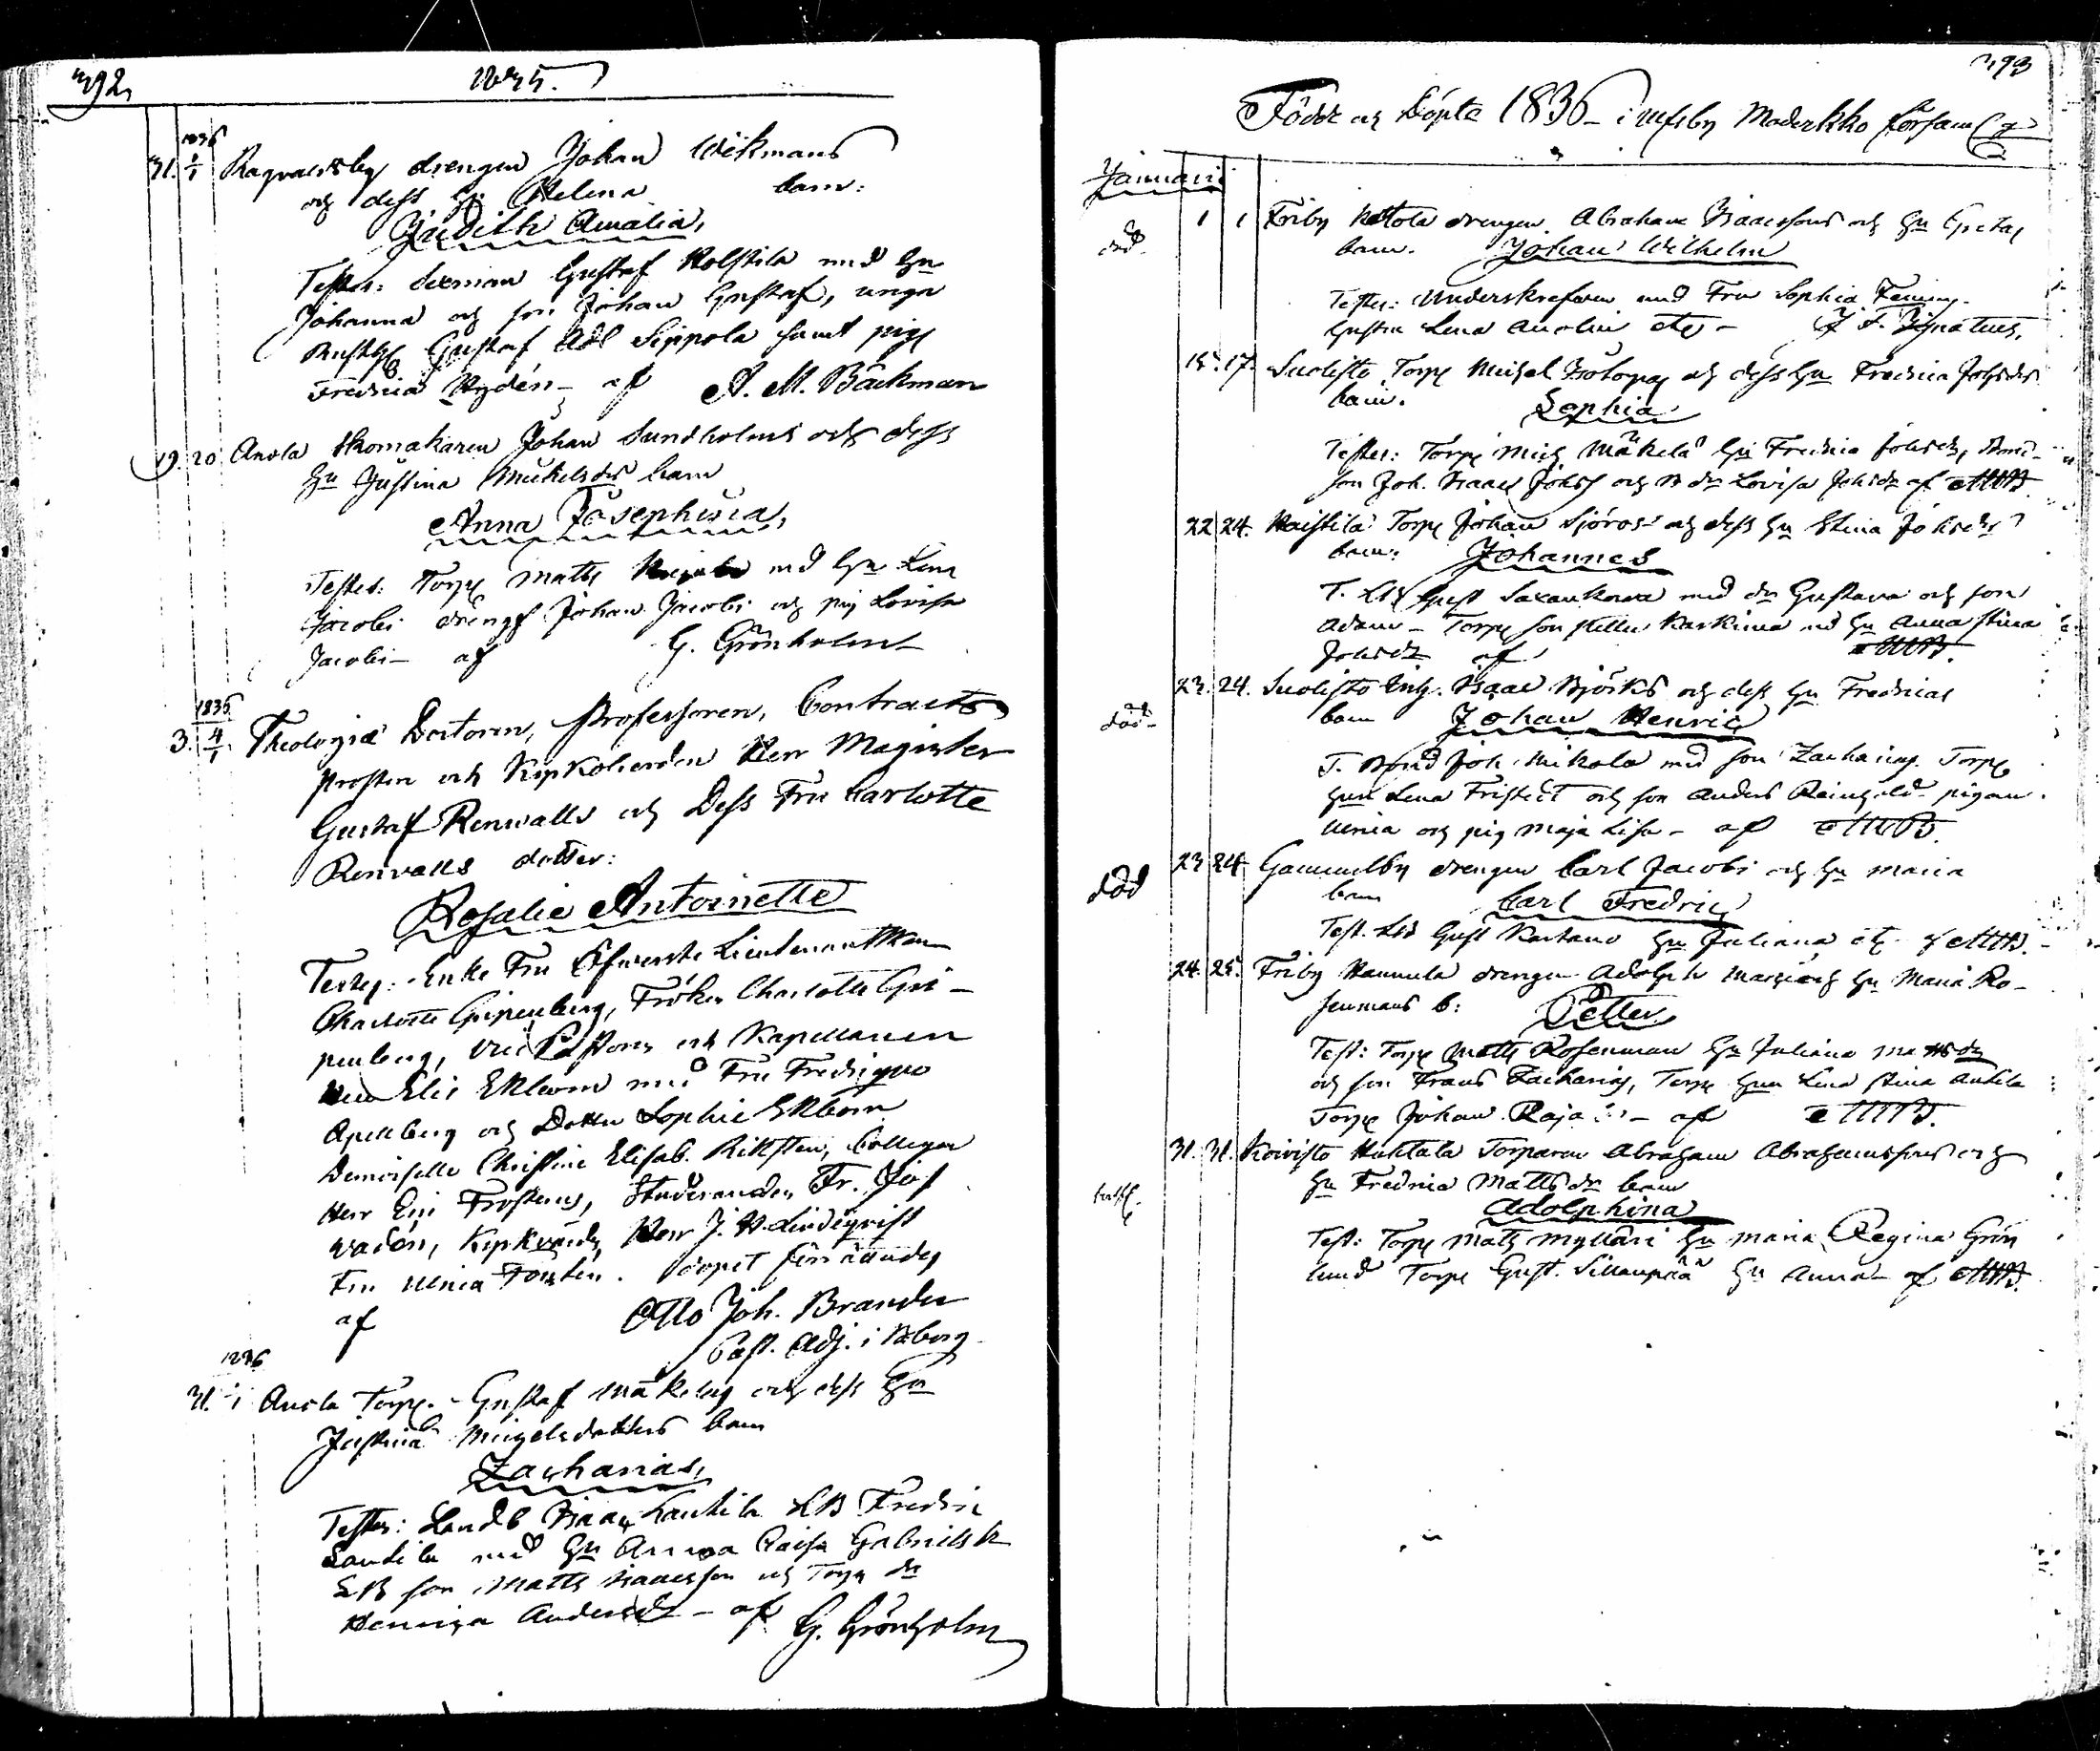 392
1835.
1836
31. 1/1 Ragvaldsby drengen Johan Wikmans
och dess Hu Helena barn:
Judith Amalia,
Testes: Sexman Gustaf Kolstila med Hu
Johanna och son Johan Gustaf, unga
Gustaf Adl Sippola samt pig
Fredrica Rydén - af A. M. Bäckman
19. 20 Anola Skomakaren Johan Sundholms och dess
Hu Justina Mickelsdrs barn
Anna Josephina,
Testes: Torp Matts med Hu Lena
Jacobs drengf Johan Jacobs och pig Lovisa
Jacobs - af G. Grönholm
1836
3. 4/1. Theologiæ Doctoren, Professoren, Contracts
prosten och Kyrkoherden Herr Magister
Gustaf Renvalls och Dess Fru Carlotte
Renvalls dotter:
Rosalie Antoinette
Testes: Enke Fru Öfverste Lieutenantskan
Charlotte Gripenberg, Fröken Charlotte Gri-
penberg, Vice Pastorn och Kapellanen
Herr Elis Ekbom med Fru Fredrique
Apelberg och Dotter Sophie Ekbom
Demoiselle Christine Elisab. Kihlsten, Collegan
Herr Frosterus, Studeranden Fr. Jos
Wadén, Herr J. H. Lindeqvist
Fru Ulrica Forstén. dopet förrättades
af Otto Joh. Brander
Past. Adj. i
1836
31. 1/1 Anola Torp. Gustaf Mäkeläs och dess Hu
Justina Michelsdotters barn
Zacharias,
Testes: Landb Isaac Lautila LB Fredric
Lautila med Hu Anna Caisa Gabrielsdr
LB son Matts Isaacsson och Torp dr
Henrica Andersdr - af G. Grönholm
393
Födde och Döpte 1836 - i Ulfsby Moderkko församlg
Januarii
död 1 1 Friby Nottola drengen Abraham Isaacssons och Hu Gretas
barn. Johan Wilhelm
Testes: Underskrefven med Fru Sophia
Lena etc - J. F. Ignatius.
15. 17. Suolisto Torp Michel och dess Hu Fredrica Johsdrs
barn. Sophia
Testes: Torp Mich Mäkelä Hu Fredrica Johsdr, Bond-
son Joh. Isaac Johss och B dr Lovisa Johsdr af AMB
22 24. Haistila Torp Johan Sjöros och dess Hu Stina Johsdrs
barn: Johannes
T. Gust Saxankowa med dr Gustava och son
Adam - Torp son Kelles Karkima med Hu Anna Stina
Johsdr af AMB.
död 23. 24. Suolisto Isaac Björks och dess Hu Fredricas
barn Johan Henric
T. Bond Joh Mikola med son Zacharias. Torp
Lena Fristedt och son Anders Reinhold pigan
Ulrica och pig Maja Lisa - af AMB.
död 23 24 Gammelby drengen Carl Jacobs och Hu Maria
barn Carl Fredric
Test. Gust Kartano Hu Juliana etc. af AMB.
24. 25. Friby Hannula drengen Adolph och Hu Maria Ro-
senmans b: Petter
Test: Torp Matts Rosenman Hu Juliana Mattsdr
och son Frans Zacharias, Torp Lena Stina Anttila
Torp Johan Raja - af AMB.
31. 31. Koivisto Huhtala Torparen Abraham Abrahamssons och
Hu Fredrica Mattsdr barn
Adolphina
Test: Torp Matts Mylläri Hu Maria, Regina Grön
lund Torp Gust. Sillanpää Hu Anna - af AMB.